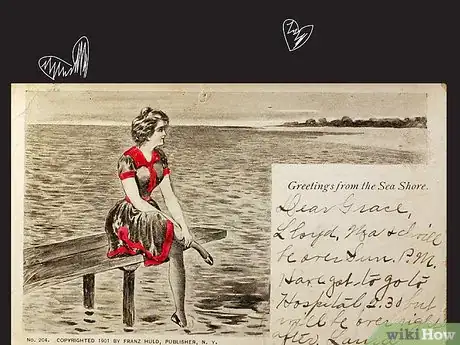 Greetings from the Sea Shore.
Dear Grace,
Lloyd, Nza & I will
be over Sun. P.M.
Have got to go to
Hospital, 2:30 but
will be over right
after,
No. 204. COPYRIGHTED 1901 BY FRANZ HULD, PUBLISHER, N. Y.
wikiHow